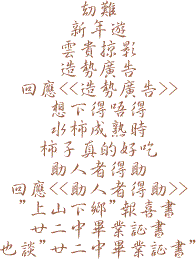 劫難
新年遊
雲貴掠影
造勢廣告
回應<<造勢廣告>>
想下得唔得
水柿成熟時
柿子真的好吃
助人者得助
回應<<助人者得助>>
"上山下鄉"報喜書
廿二中畢業証書
也談"廿二中畢業証書"